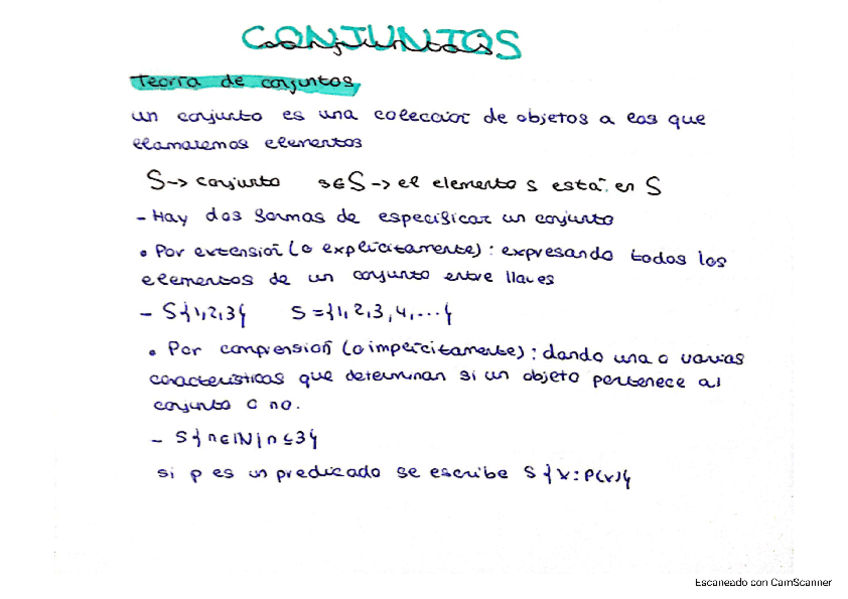 CONJUNTOS
conjuntos
Teoría de conjuntos
un conjunto es una colección de objetos a los que
llamaremos elementos
S -> conjunto s∈S -> el elemento s está en S
- Hay dos formas de especificar un conjunto
• Por extensión (o explícitamente): expresando todos los
elementos de un conjunto entre llaves
- S{1,2,3} S={1,2,3,4,...}
• Por comprensión (o impercitamente): dando una o varias
características que determinan si un objeto pertenece al
conjunto o no.
- S{n∈ℕ|n≤3}
si p es un predicado se escribe S{x:P(x)}
Escaneado con CamScanner